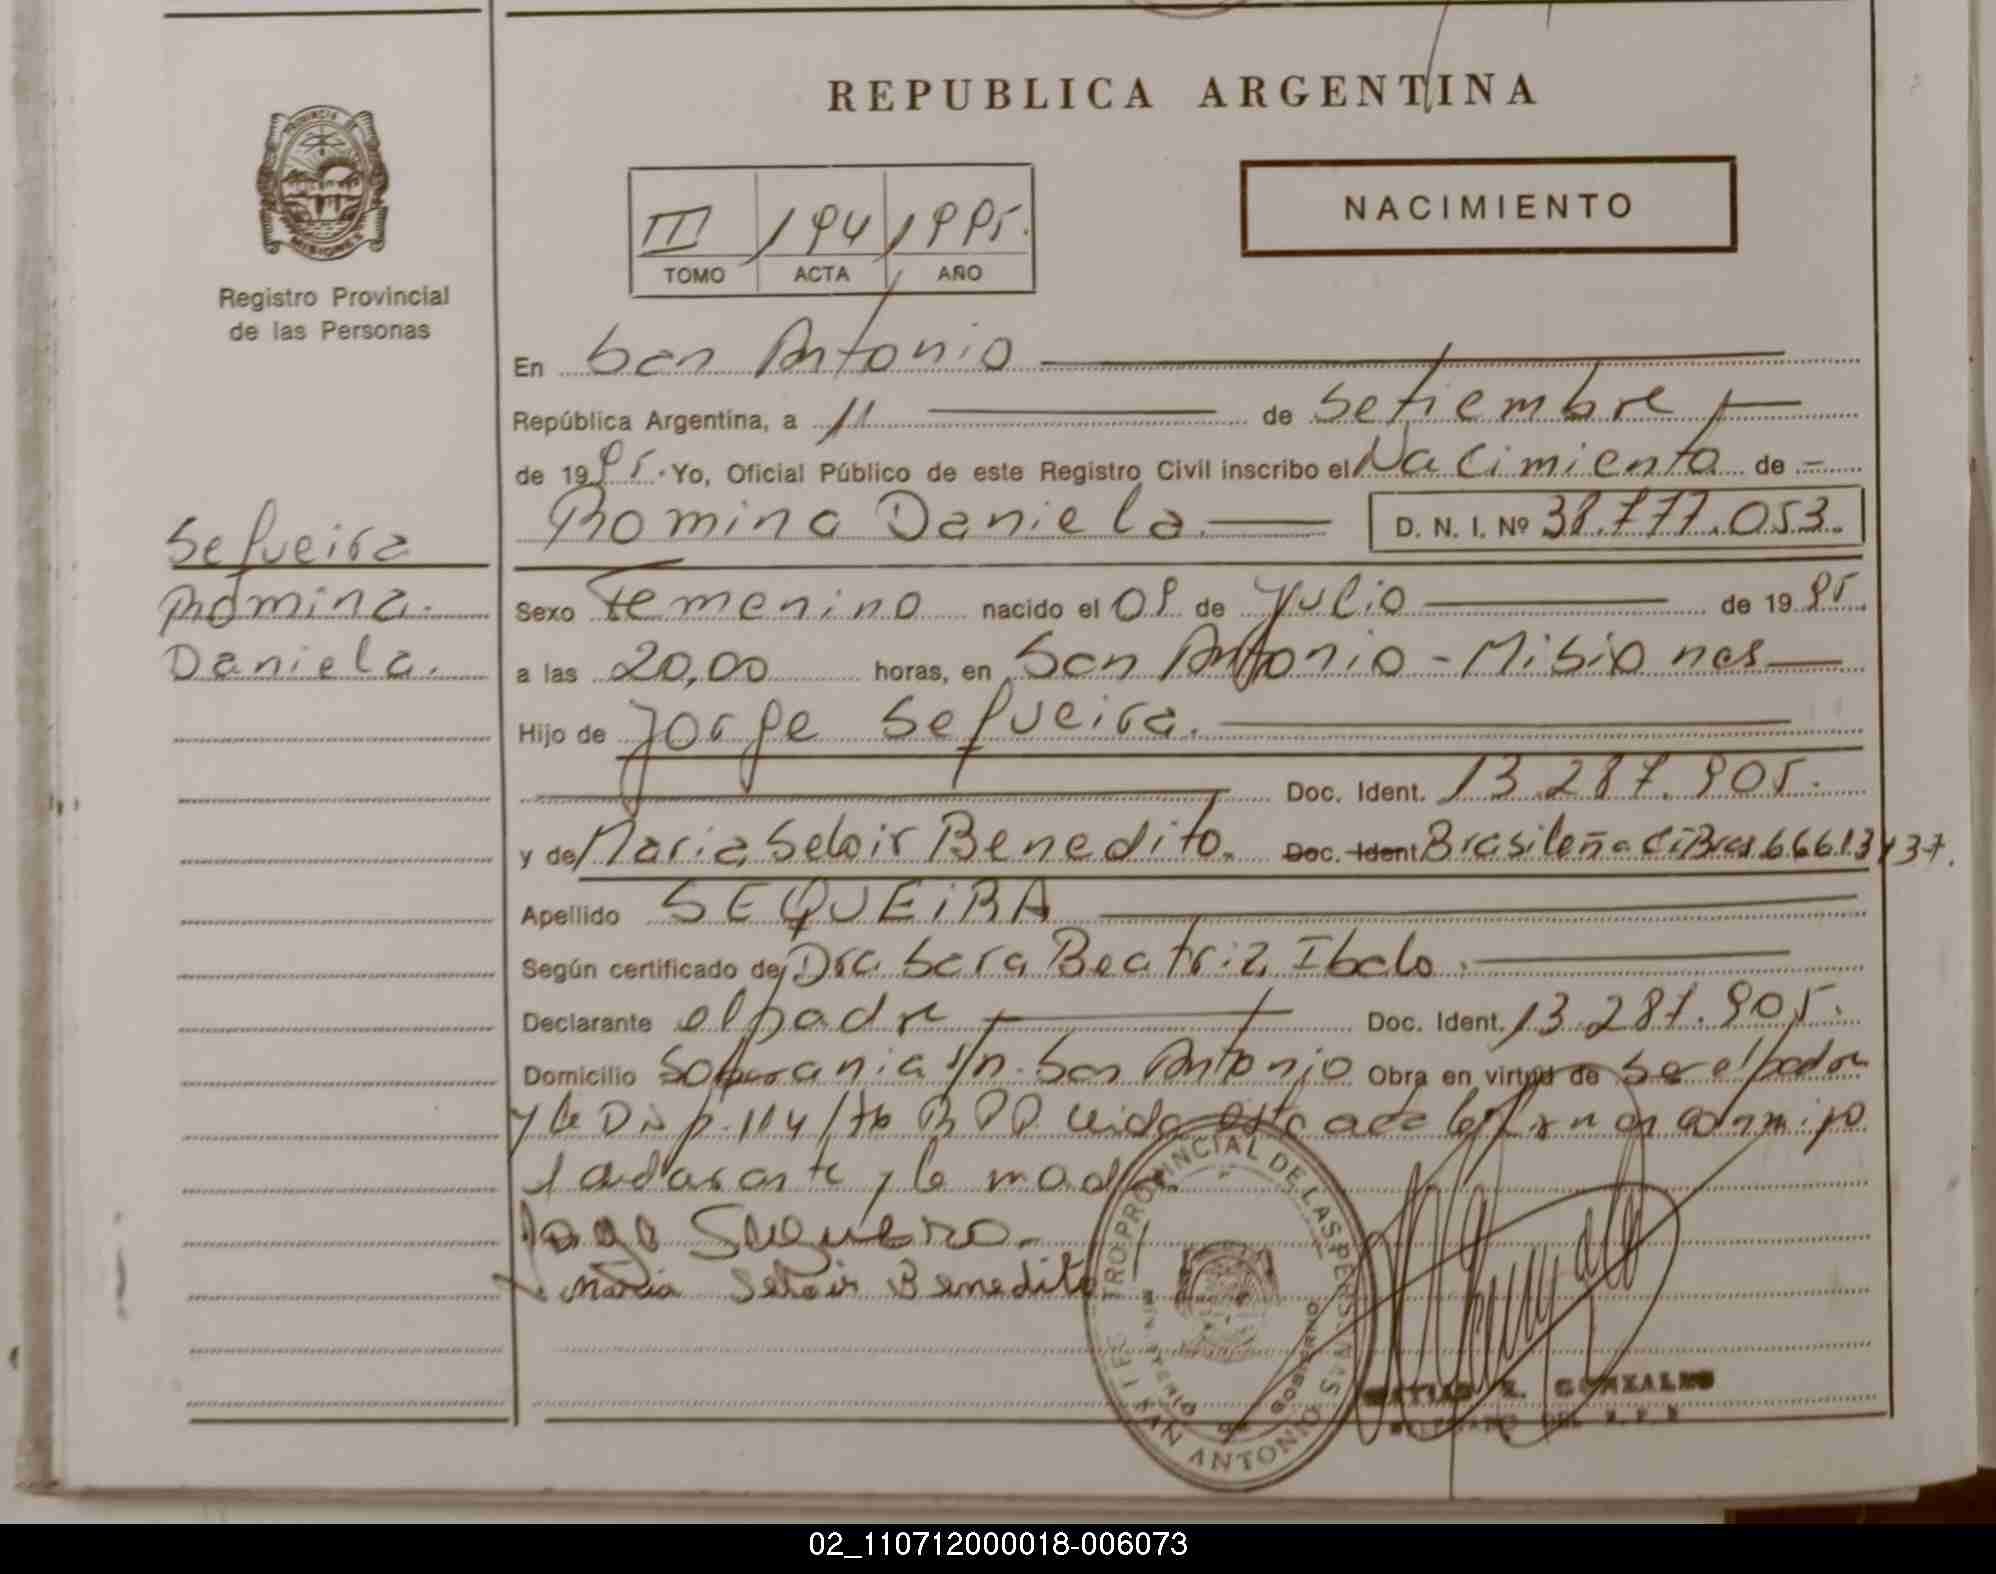 REPUBLICA ARGENTINA
PROVINCIA DE
MISIONES
Registro Provincial
de las Personas
III 194 1995.
TOMO ACTA AÑO
NACIMIENTO
En San Antonio
República Argentina, a 11 de Setiembre
de 1995. Yo, Oficial Público de este Registro Civil inscribo el Nacimiento de
Romina Daniela. D. N. I. Nº 38.777.053.
Sequeira
Romina.
Daniela.
Sexo Femenino nacido el 09 de Julio de 1995
a las 20,00 horas, en San Antonio - Misiones
Hijo de Jorge Sequeira.
Doc. Ident. 13.287.905.
y de Maria Seloir Benedito. Doc. Ident Brasileña CiBras 66613437.
Apellido SEQUEiRA
Según certificado de Dra Sara Beatriz Ibalo.
Declarante el padre Doc. Ident. 13.287.905.
Domicilio Soberania s/n. San Antonio Obra en virtud de ser el padre
y la Disp. 114/76 RPP Leida esta acta la firman conmigo
el declarante y la madre.
Jorge Sequeira.
Maria Seloir Benedito
REGISTRO PROVINCIAL DE LAS PERSONAS
MINISTERIO DE GOBIERNO
SAN ANTONIO MS
R. GONZALES
DEL R. P. P.
02_110712000018-006073